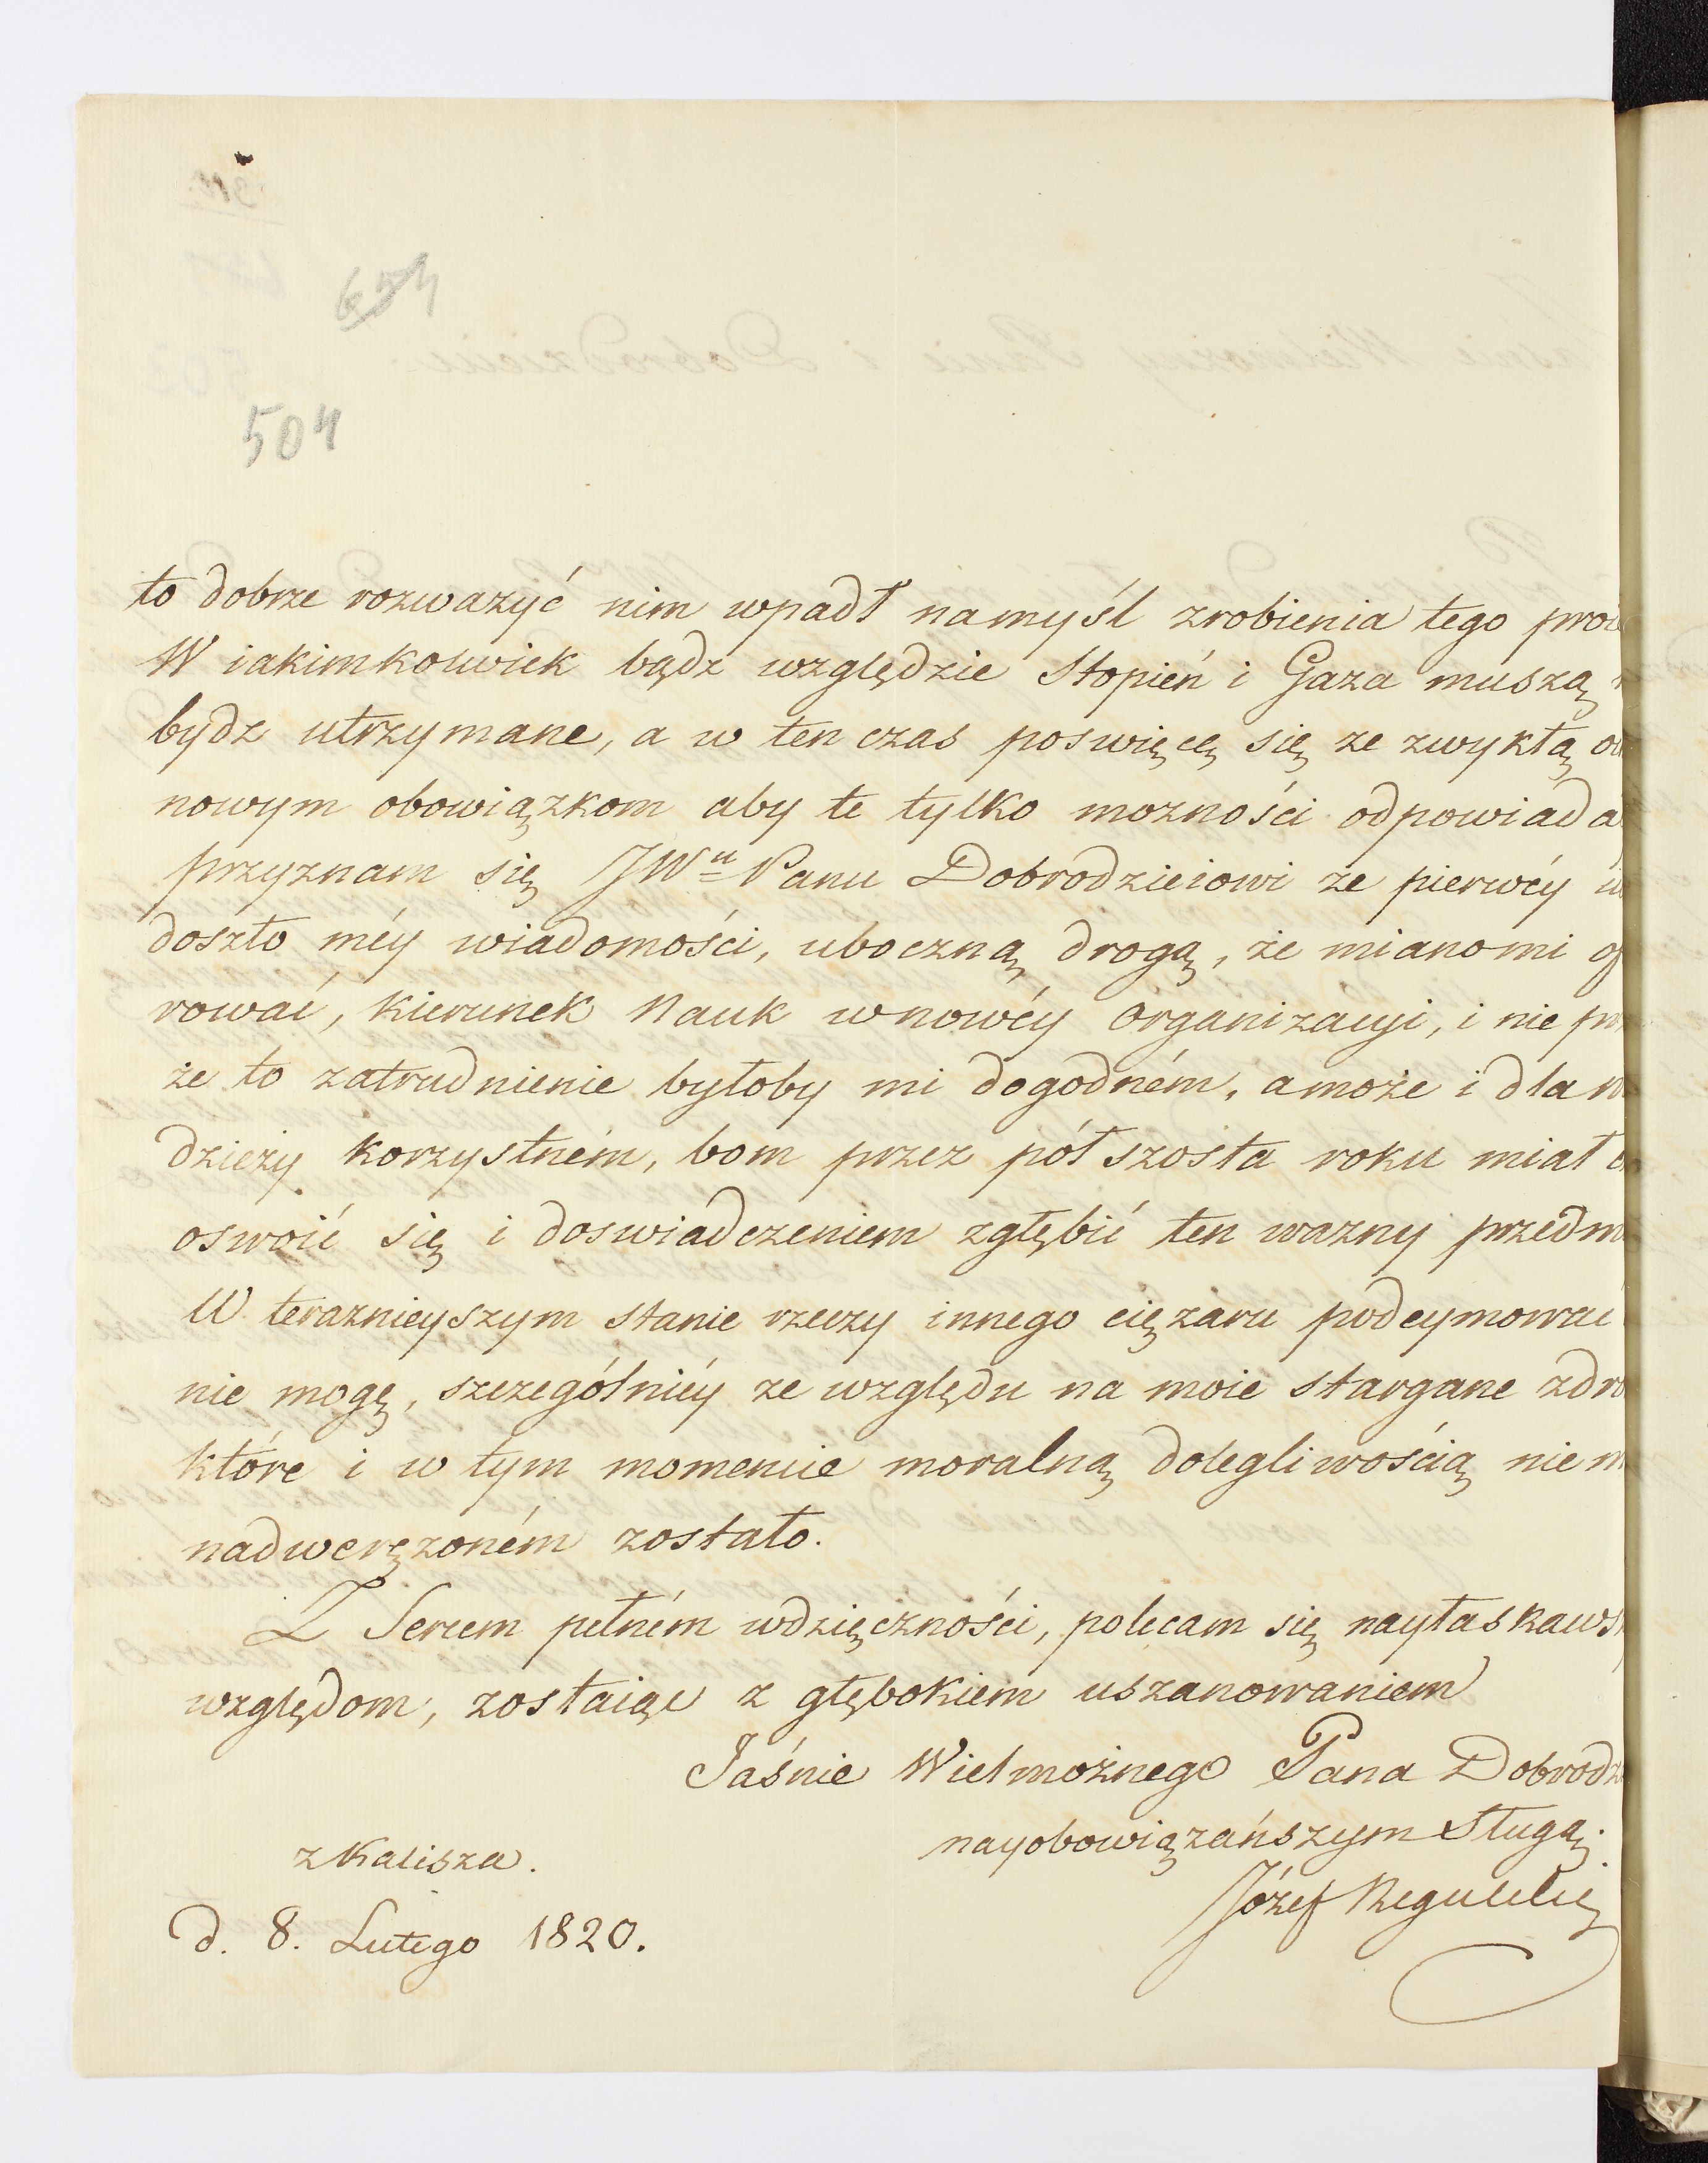 654
504
to dobrze rozwazyć nim wpadł namyśl zrobienia tego
W iakimkolwiek bądz względzie Stopień i Gaza muszą
bydz utrzymane, a w ten czas poswięcę się ze zwykłą
nowym obowiązkom aby te tylko mozności odpowiada
przyznam się JWu Panu Dobrodzieiowi ze pierwéy
doszło méy wiadomości, uboczną drogą, że mianomi
rować, kierunek Nauk wnowéy Organizacyi, i nie
że to zatrudnienie byłoby mi dogodném, amoże i dla
dzieży korzystném, bom przez pół szosta roku miał
oswoić się i doswiadczeniem zgłębić ten wazny przedm
W teraznieyszym stanie rzeczy innego ciężaru podeymować
nie mogę, szczególniéy ze względu na moie stargane zdro
które i w tym momencie moralną dolegliwością nie
nadwerężoném zostało.
Z Sercem pełném wdzięczności, polecam się nayłaskaws
względom, zostaiąc z głębokiem uszanowaniem
Jaśnie Wielmożnego Pana Dobrodz
nayobowiązańszym Sługą.
Józef Regulski
z Kalisza.
d. 8. Lutego 1820.